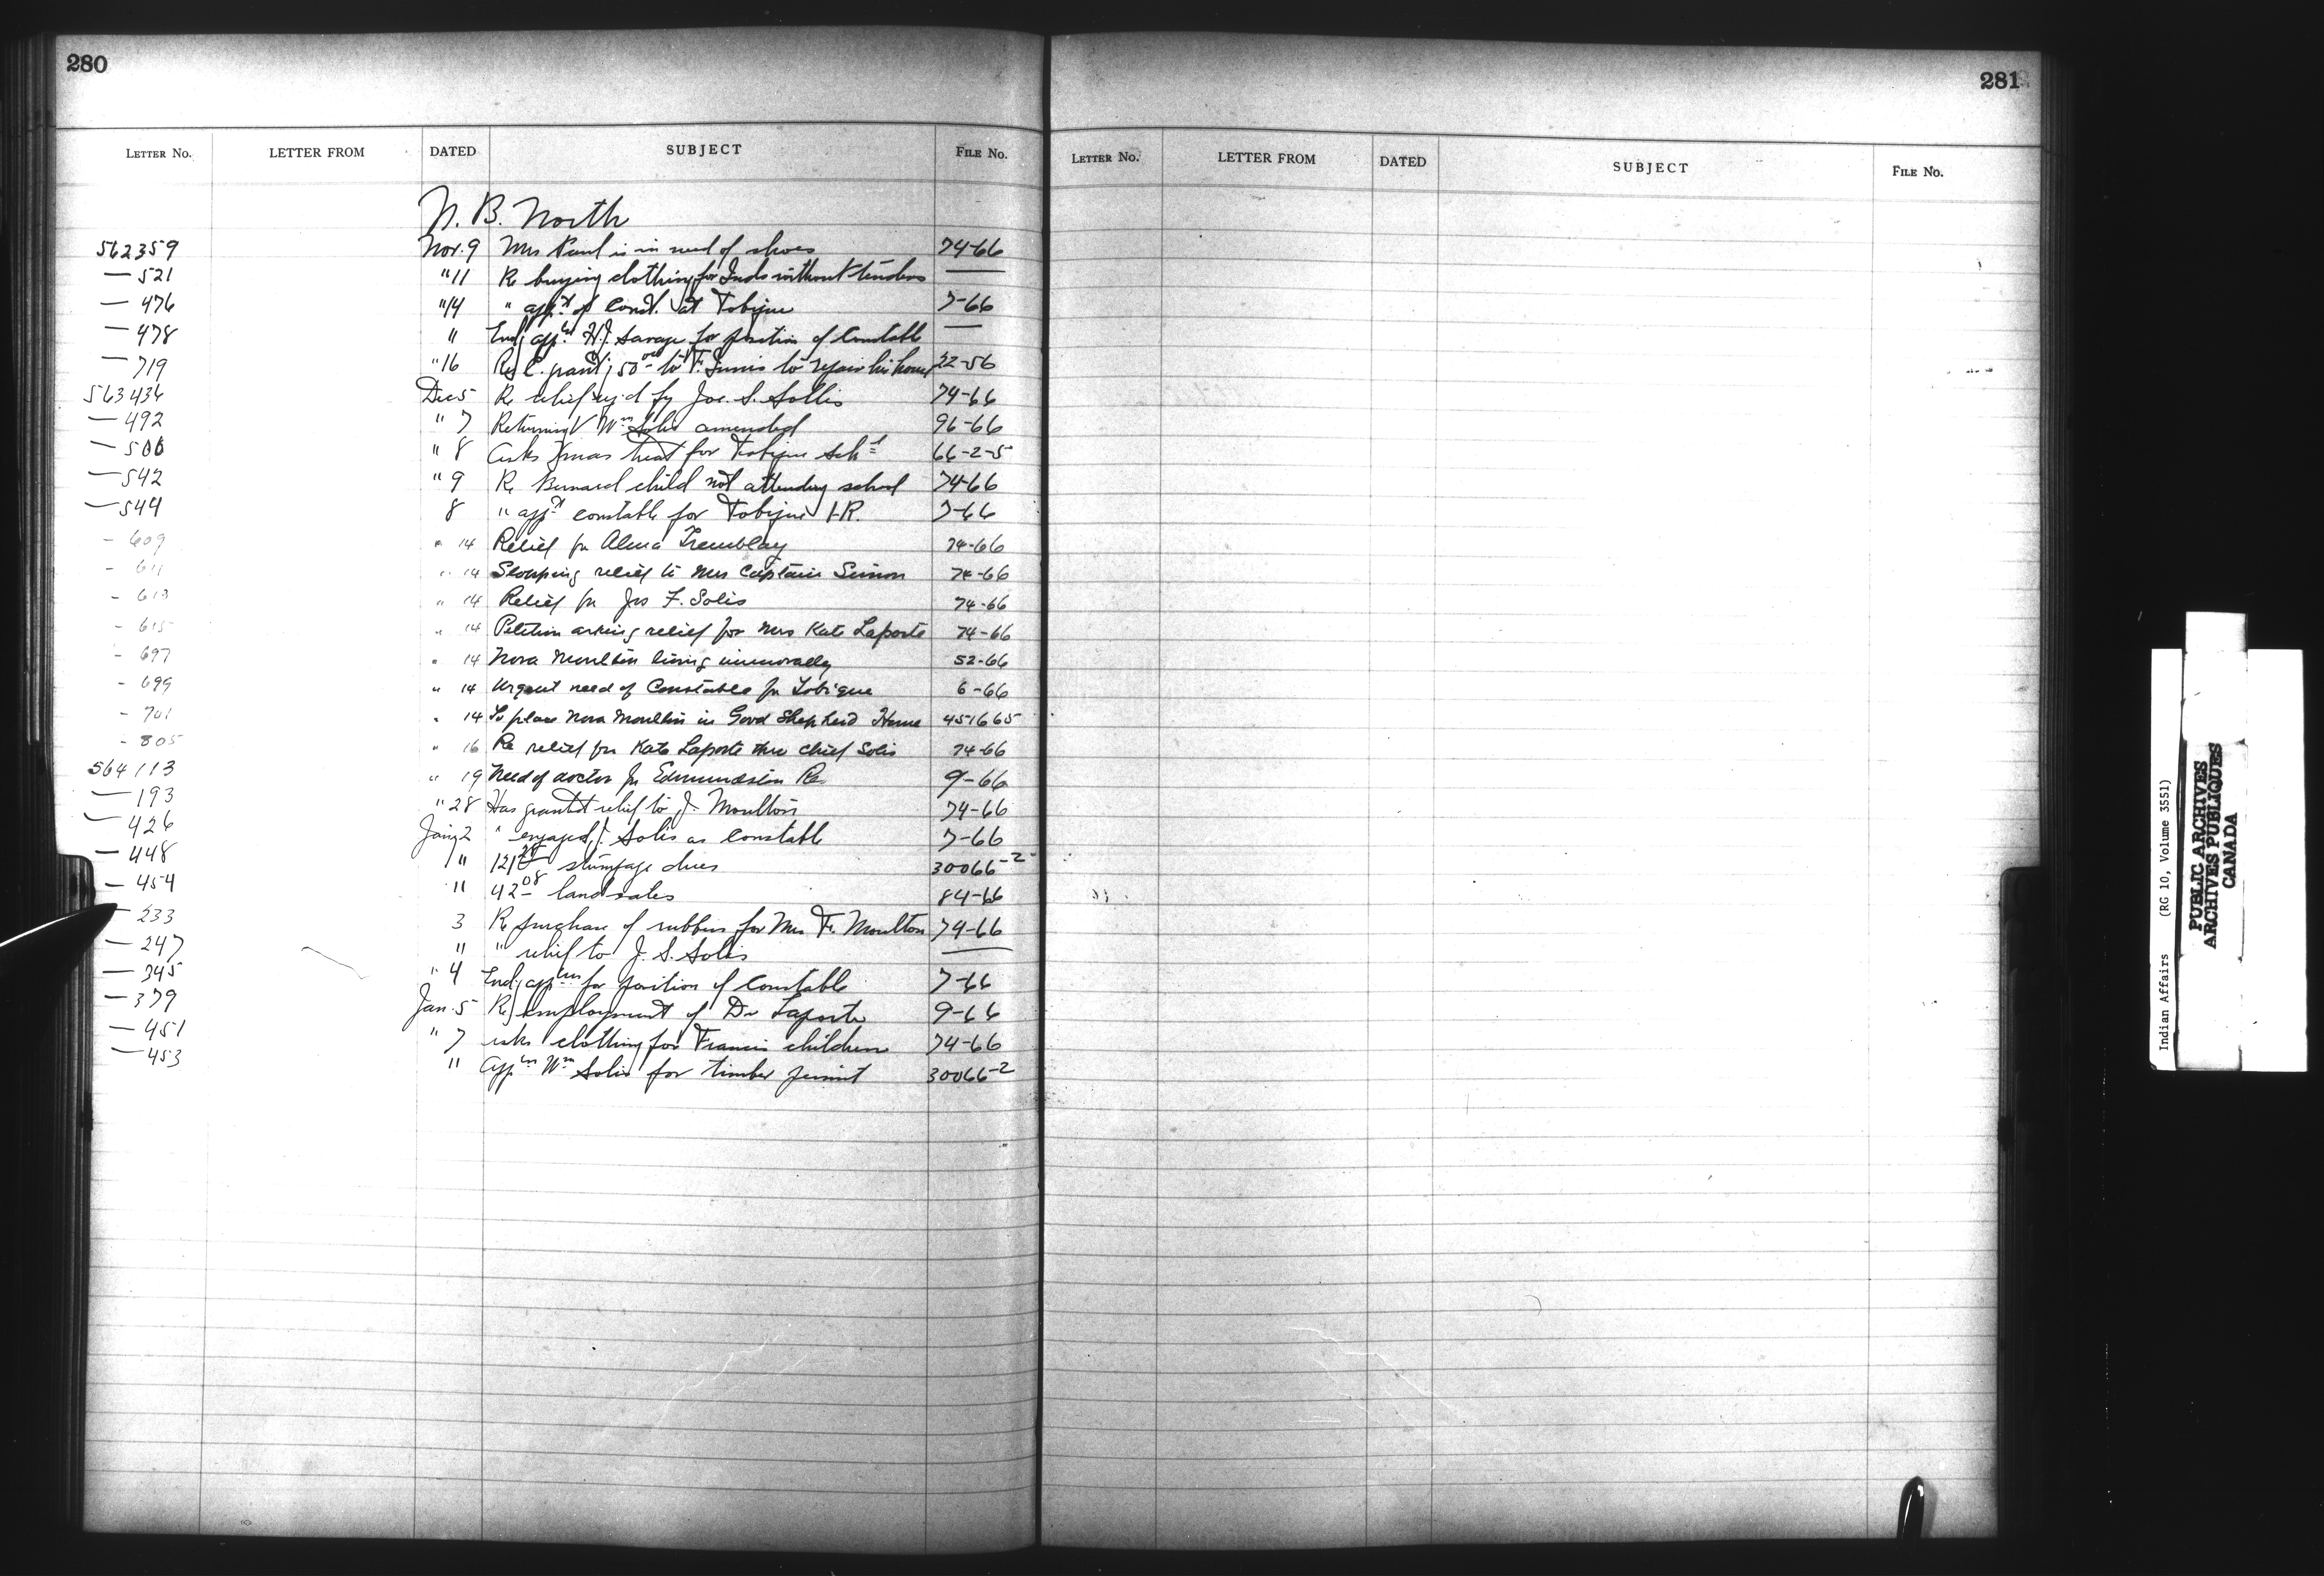 280
LETTER NO. LETTER FROM DATED SUBJECT FILE No.
N. B. North
562359 Nov. 9 Mrs Paul is in need of shoes 74-66
— 521 " 11 Re buying clothing for Inds without tenders —
— 476 " 14 " app.t of Const. at Tobique 7-66
— 478 " End. app. H.J. Savage for position of Constable —
— 719 " 16 Re grant 50 to F. to repair his house 22-56
563436 Dec 5 Re relief by Joe. S. Sollis 74-66
— 492 " 7 Returning V Wm Solis amended 96-66
— 500 " 8 Asks Xmas treat for Tobique Sch 66-2-5
— 542 " 9 Re Bernard child not attending school 74-66
— 544 8 " app.t constable for Tobique I.R. 7-66
- 609 " 14 Relief for Alma Tremblay 74-66
- 611 " 14 Stopping relief to Mrs Captain Simon 74-66
- 613 " 14 Relief for Jos F. Solis 74-66
- 615 " 14 Petition asking relief for Mrs Kate Laporte 74-66
- 697 " 14 Nora Moulton living immorally 52-66
- 699 " 14 Urgent need of Constable for Tobique 6-66
- 701 " 14 To place Nora Moulton in Good Shepherd Home 451665
- 805 " 16 Re relief for Kate Laporte thru Chief Solis 74-66
564113 " 19 Need of doctor for Edmundston Re. 9-66
— 193 " 28 Has granted relief to J. Moulton 74-66
— 426 Jany 2 " engaged J. Solis as Constable 7-66
— 448 " 121 stumpage dues 30066-2
— 454 " 42 08 land sales 84-66
— 233 3 Re purchase of rubbers for Mrs F. Moulton 74-66
— 247 " " relief to J. S. Solis —
— 345 " 4 End. app for position of Constable 7-66
— 379 Jan. 5 Re employment of Dr Laporte 9-66
— 451 " 7 asks clothing for Francis children 74-66
— 453 " App Wm Solis for timber permit 30066-2
281
LETTER NO. LETTER FROM DATED SUBJECT FILE No.
Indian Affairs (RG 10, Volume 3551)
PUBLIC ARCHIVES
ARCHIVES PUBLIQUES
CANADA